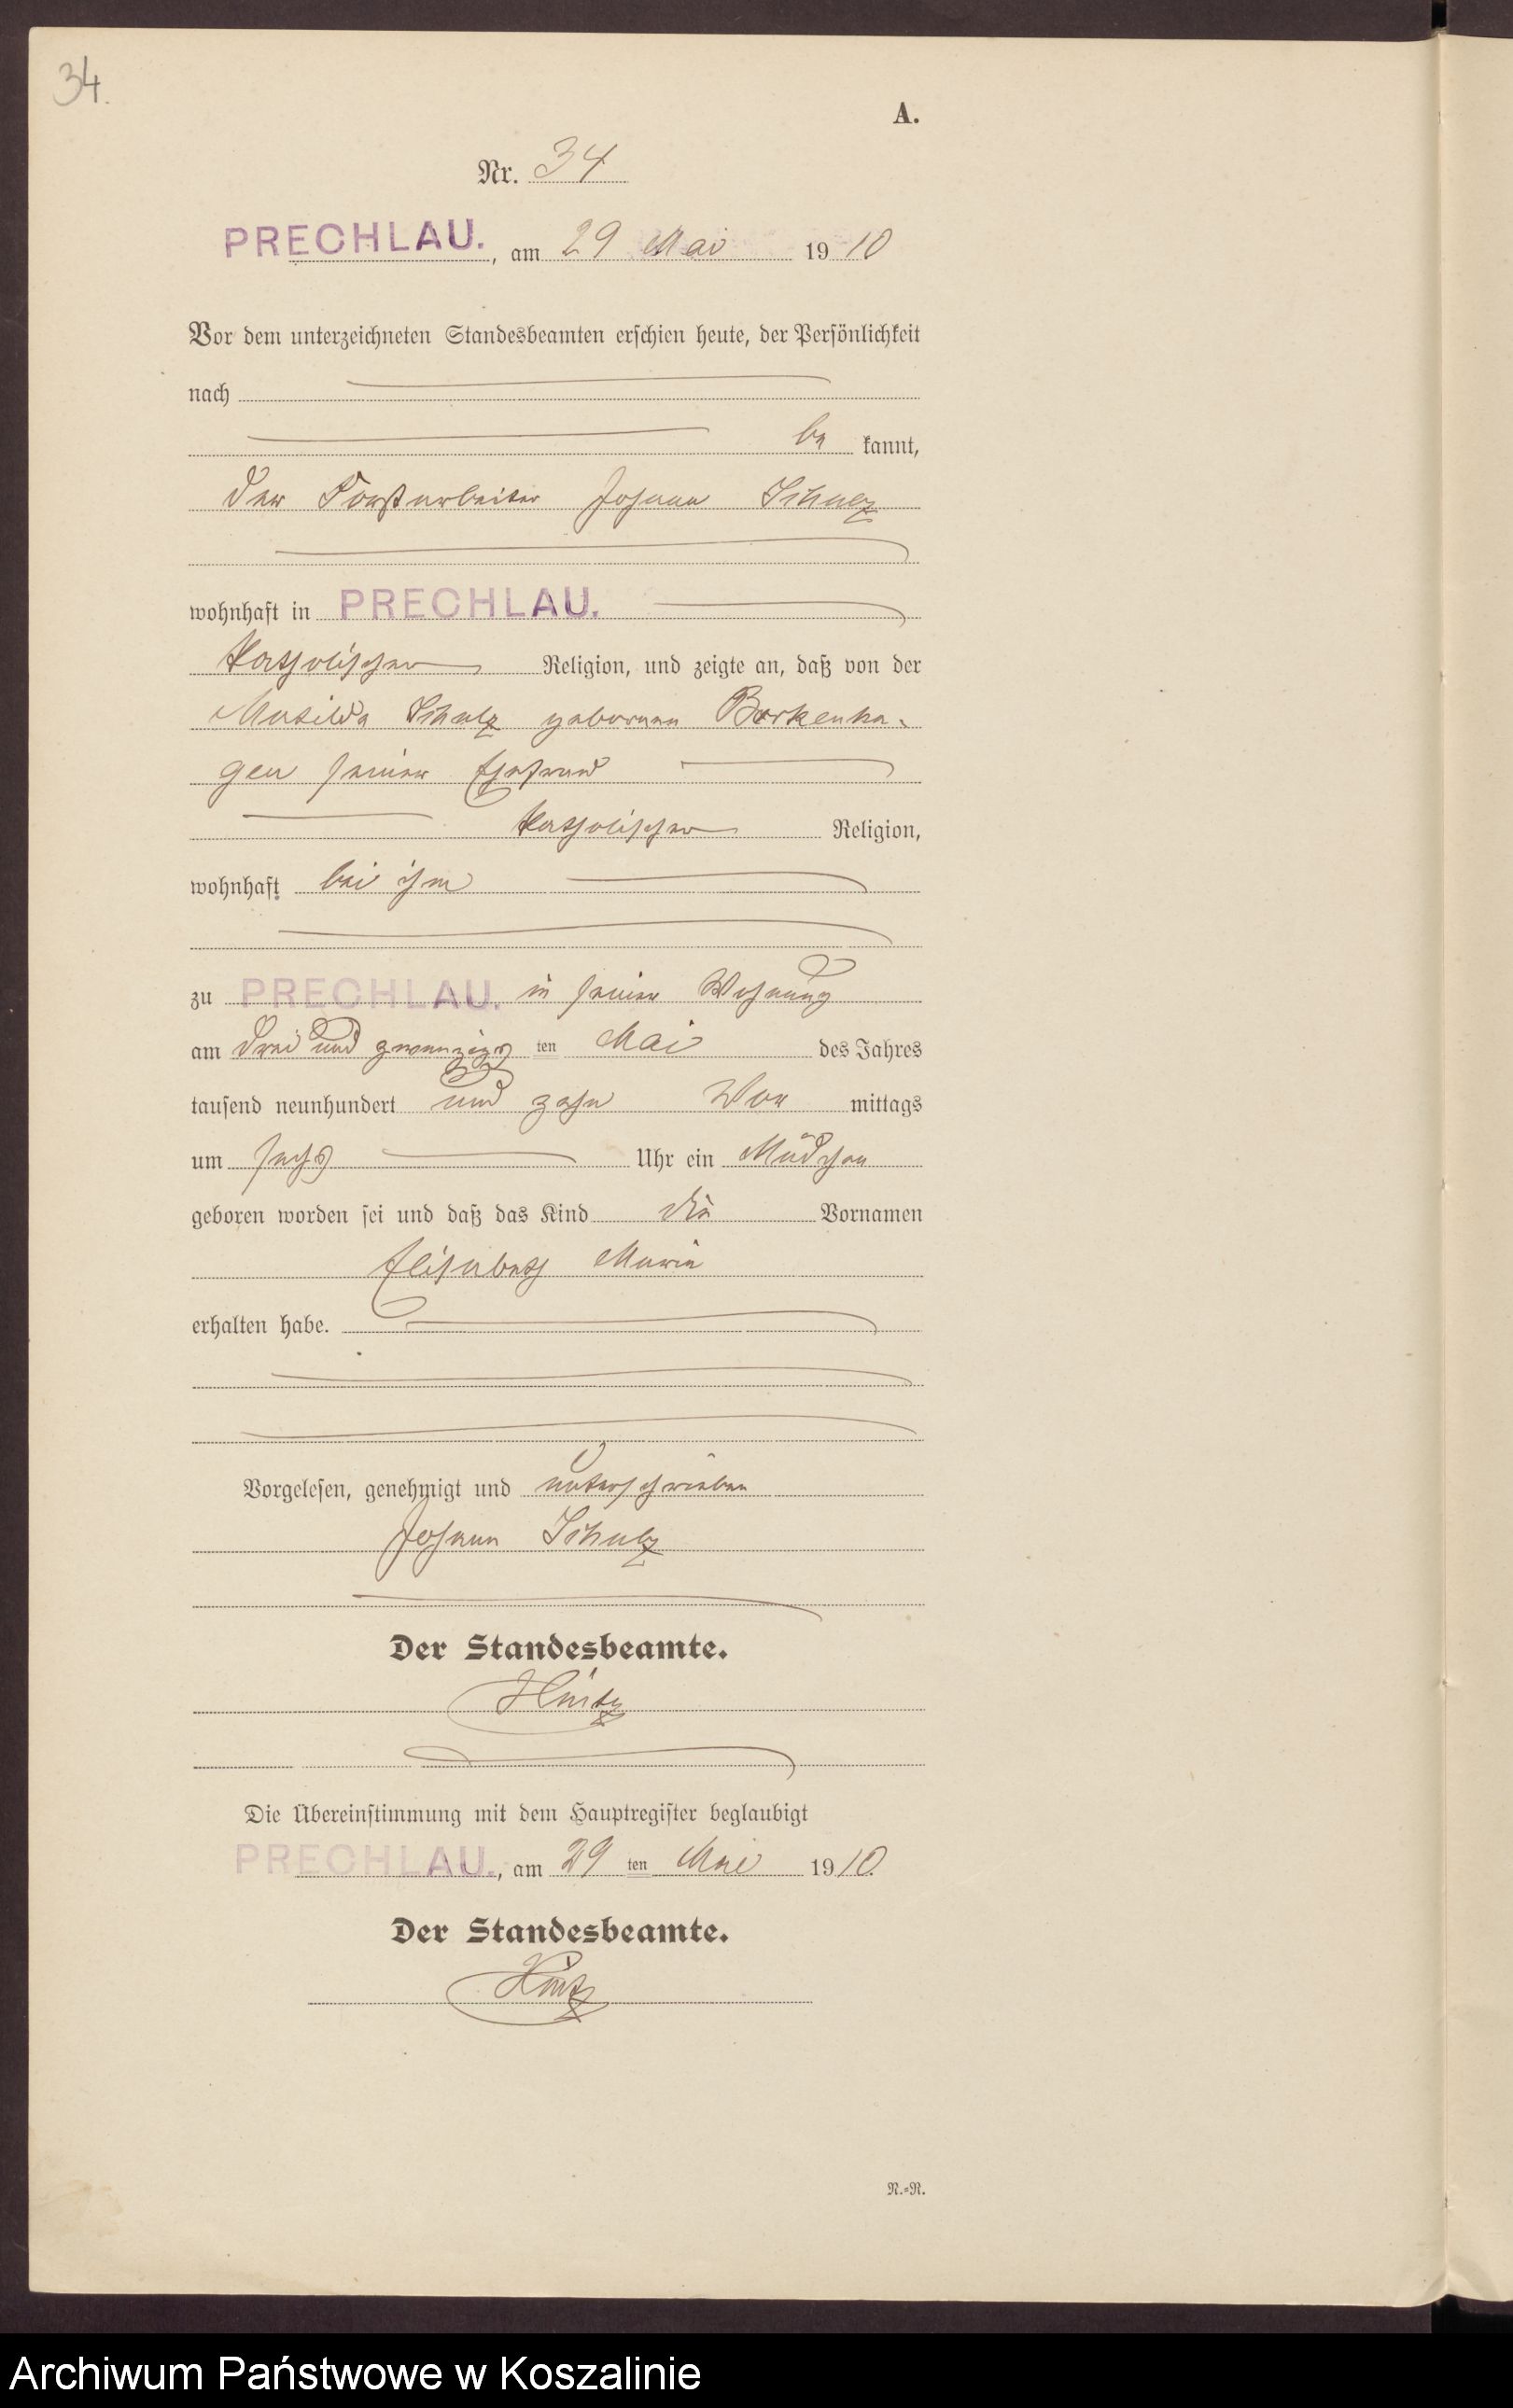 34.
A.
Nr. 34
PRECHLAU., am 29 Mai 1910
Vor dem unterzeichneten Standesbeamten erschien heute, der Persönlichkeit
nach
be kannt,
der Forstarbeiter Johann Schulz
wohnhaft in PRECHLAU.
katholischer Religion, und zeigte an, daß von der
Matilda Schulz geborenen Borkenha-
gen seiner Ehefrau
katholischer Religion,
wohnhaft bei ihm
zu PRECHLAU. in seiner Wohnung
am drei und zwanzigsten Mai des Jahres
tausend neunhundert und zehn Vor mittags
um sechs Uhr ein Mädchen
geboren worden sei und daß das Kind die Vornamen
Elisabeth Maria
erhalten habe.
Vorgelesen, genehmigt und unterschrieben
Johann Schulz
Der Standesbeamte.
Die Übereinstimmung mit dem Hauptregister beglaubigt
PRECHLAU., am 29 ten Mai 1910.
Der Standesbeamte.
N.=R.
Archiwum Państwowe w Koszalinie